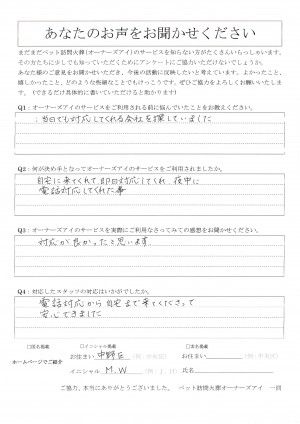 あなたのお声をお聞かせください
まだまだペット訪問火葬(オーナーズアイ)のサービスを知らない方がたくさんいらっしゃいます。
その方たちに少しでも知っていただくためにアンケートにご協力いただけないでしょうか。
あなた様のご意見をお聞かせいただき、今後の活動に反映したいと考えています。よかったこと、
嬉しかったこと、どのような些細なことでもけっこうです。ぜひご協力をよろしくお願いいたしま
す。(できるだけ具体的に書いていただけると助かります)
Q1：オーナーズアイのサービスをご利用される前に悩んでいたことをお教えください。
当日でも対応してくれる会社を探していました
Q2：何が決め手となってオーナーズアイのサービスをご利用されましたか。
自宅に来てくれて即日対応してくれ 夜中に
電話対応してくれた事
Q3：オーナーズアイのサービスを実際にご利用なさってみての感想をお聞かせください。
対応が良かったと思います
Q4：対応したスタッフの対応はいかがでしたか。
電話対応から自宅まで来てくださって
安心できました
□実名掲載 ☑イニシャル掲載 □匿名掲載
ホームページでご紹介
お住まい 中野区 (例：中央区) お住まい (例：中央区)
イニシャル M.W (例：J．H) 氏名
ご協力、本当にありがとうございました。 ペット訪問火葬オーナーズアイ 一同